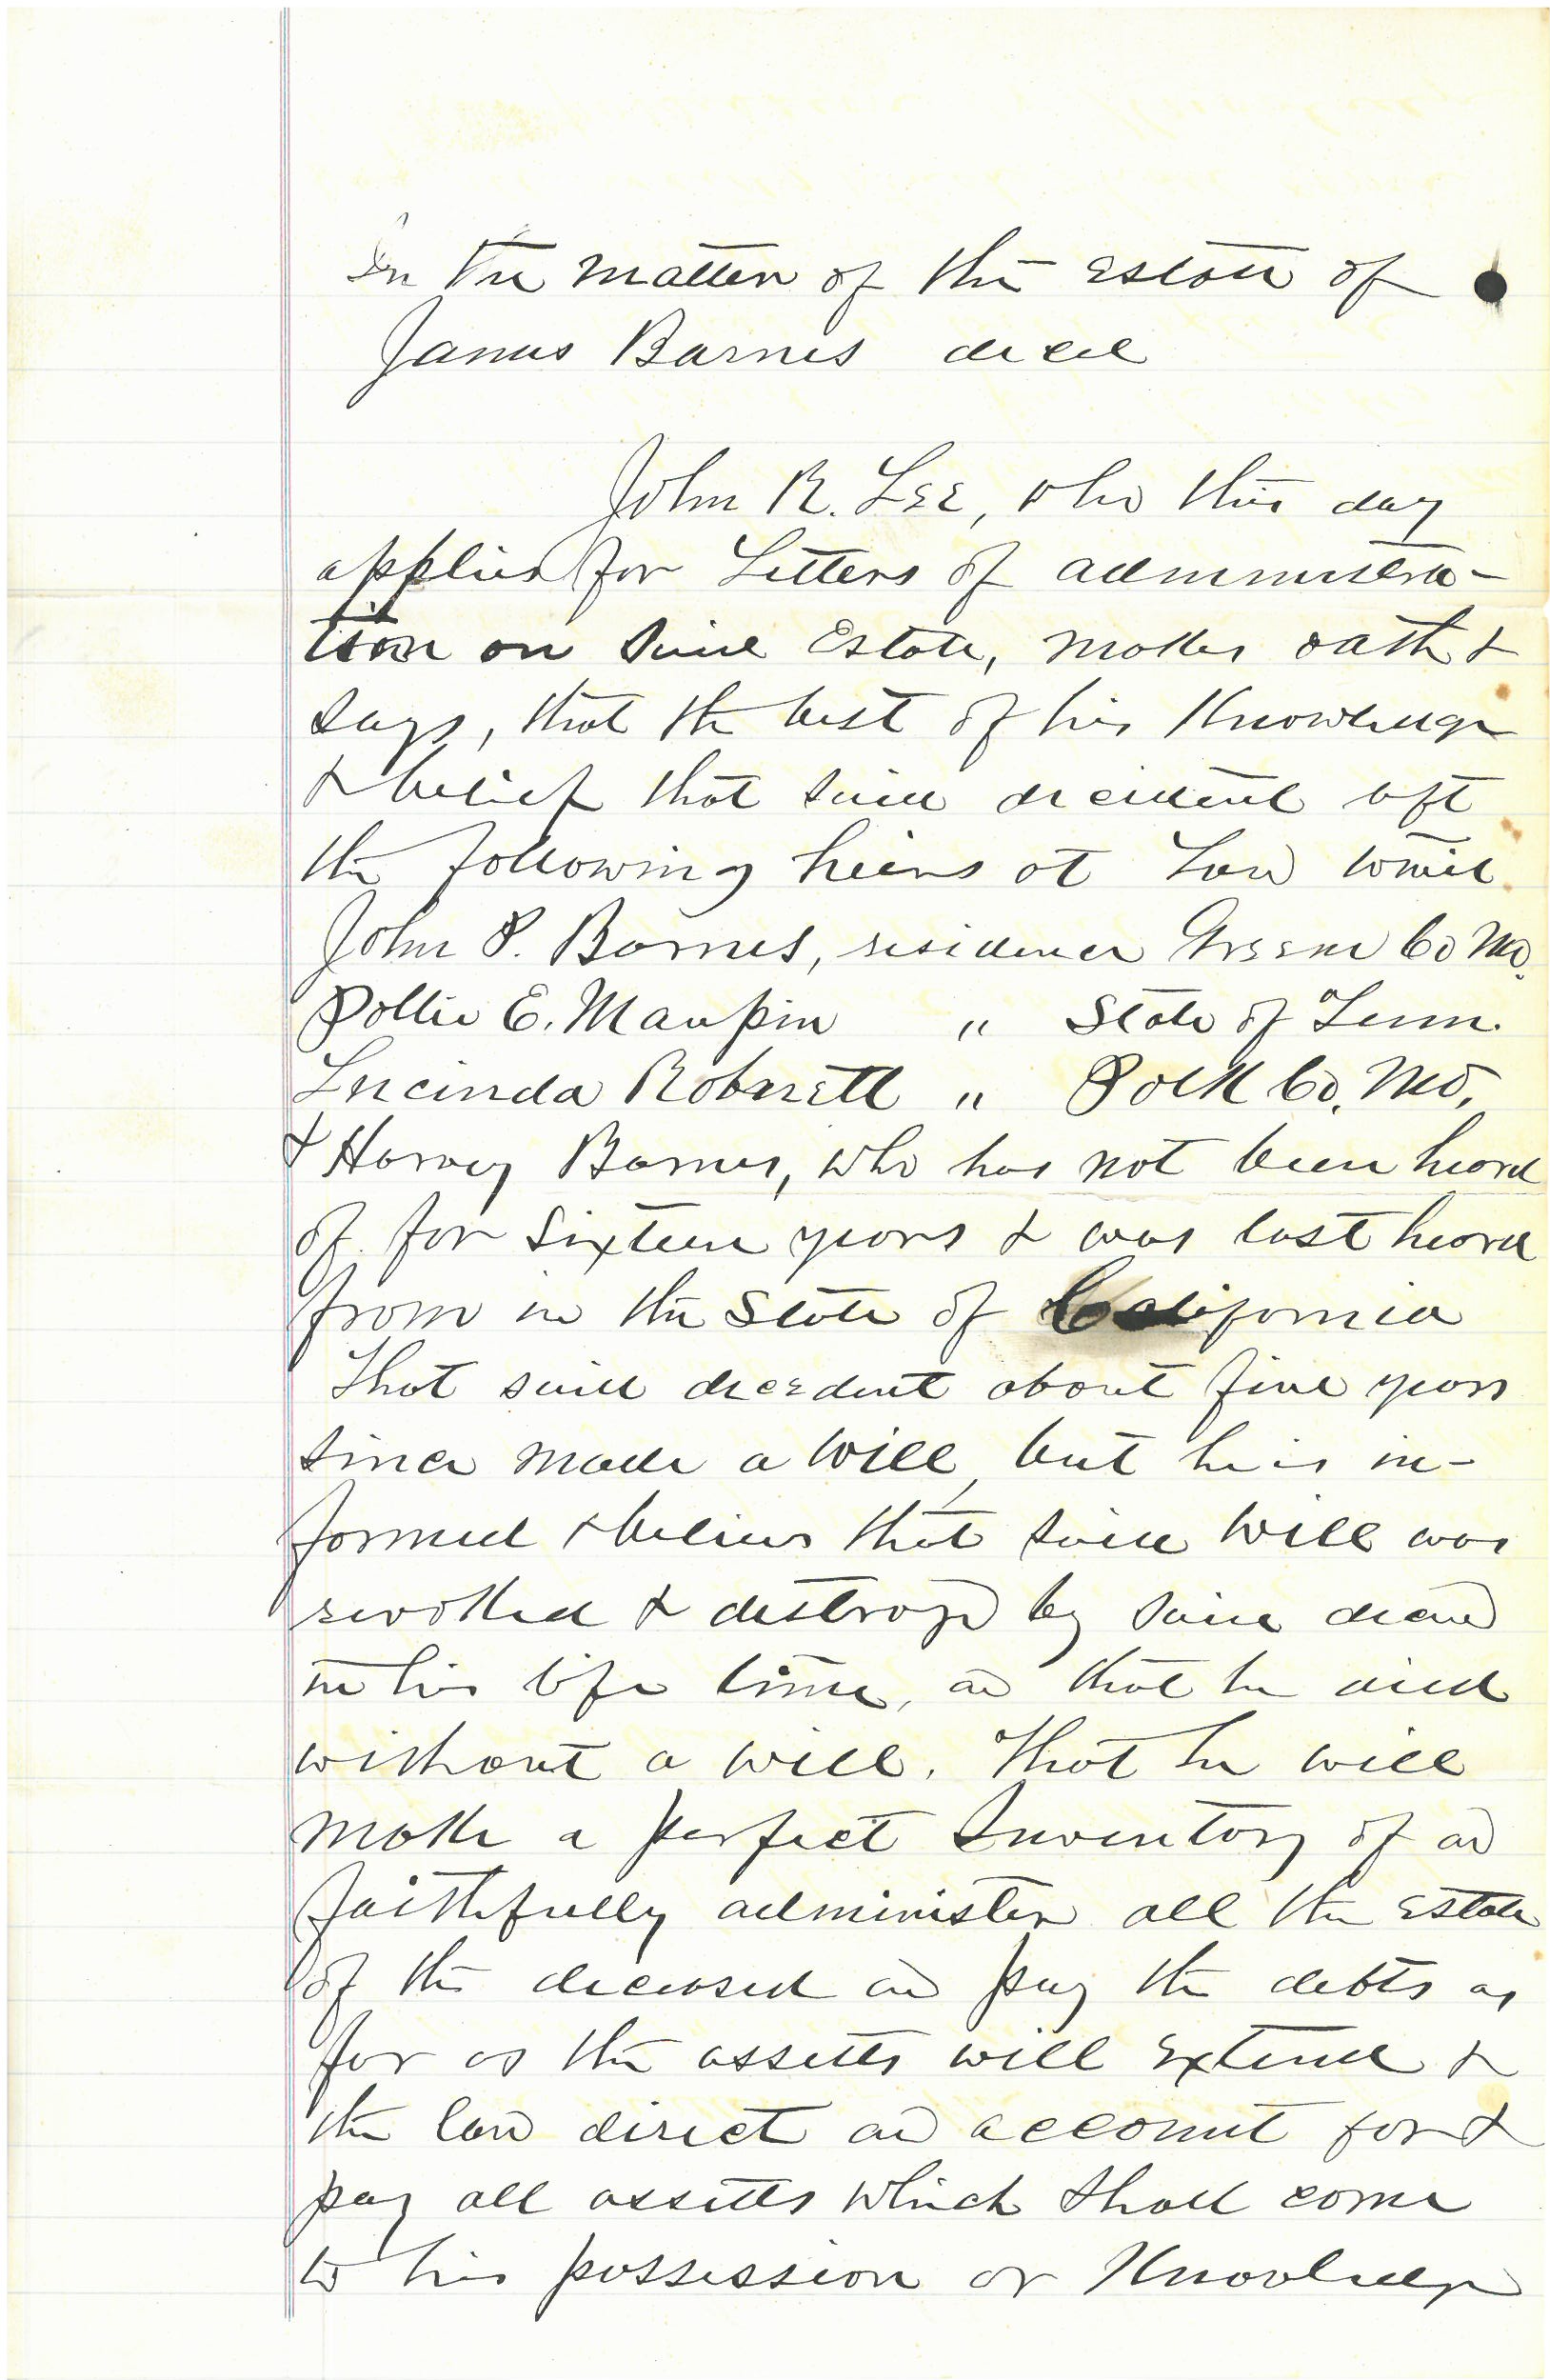 In the matter of the Estate of
James Barnes decd
John R. Lee, who this day
applies for Letters of administra-
tion on said Estate, makes oath &
says, that the best of his Knowledge
& belief that said decedent left
the following heirs at Law towit
John P. Barnes, residence Greene Co Mo.
Pollie E. Maupin " State of Tenn.
Lucinda Robnett " Polk Co. Mo,
& Harvey Barnes, who has not been heard
of for Sixteen years & was last heard
from in the State of California
That said decedent about five years
since made a Will, but he is in-
formed & believes that said Will was
revoked & destroyed by said decd
in his life time, and that he died
without a will. That he will
make a perfect Inventory of and
faithfully administer all the Estate
of the deceased and pay the debts as
far as the assetts will Extend &
the law direct and account for &
pay all assetts which shall come
to his possession or Knowledge